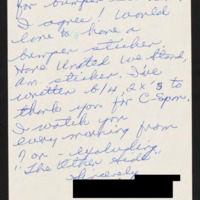 for bumper
I agree! Would
love to have a
bumper sticker.
Have United We Stand,
Am sticker. I've
written b/4, 2X's to
thank you for C-Span.
I watch you
every morning from
7 on - excluding
"The Other Side"
Sincerely